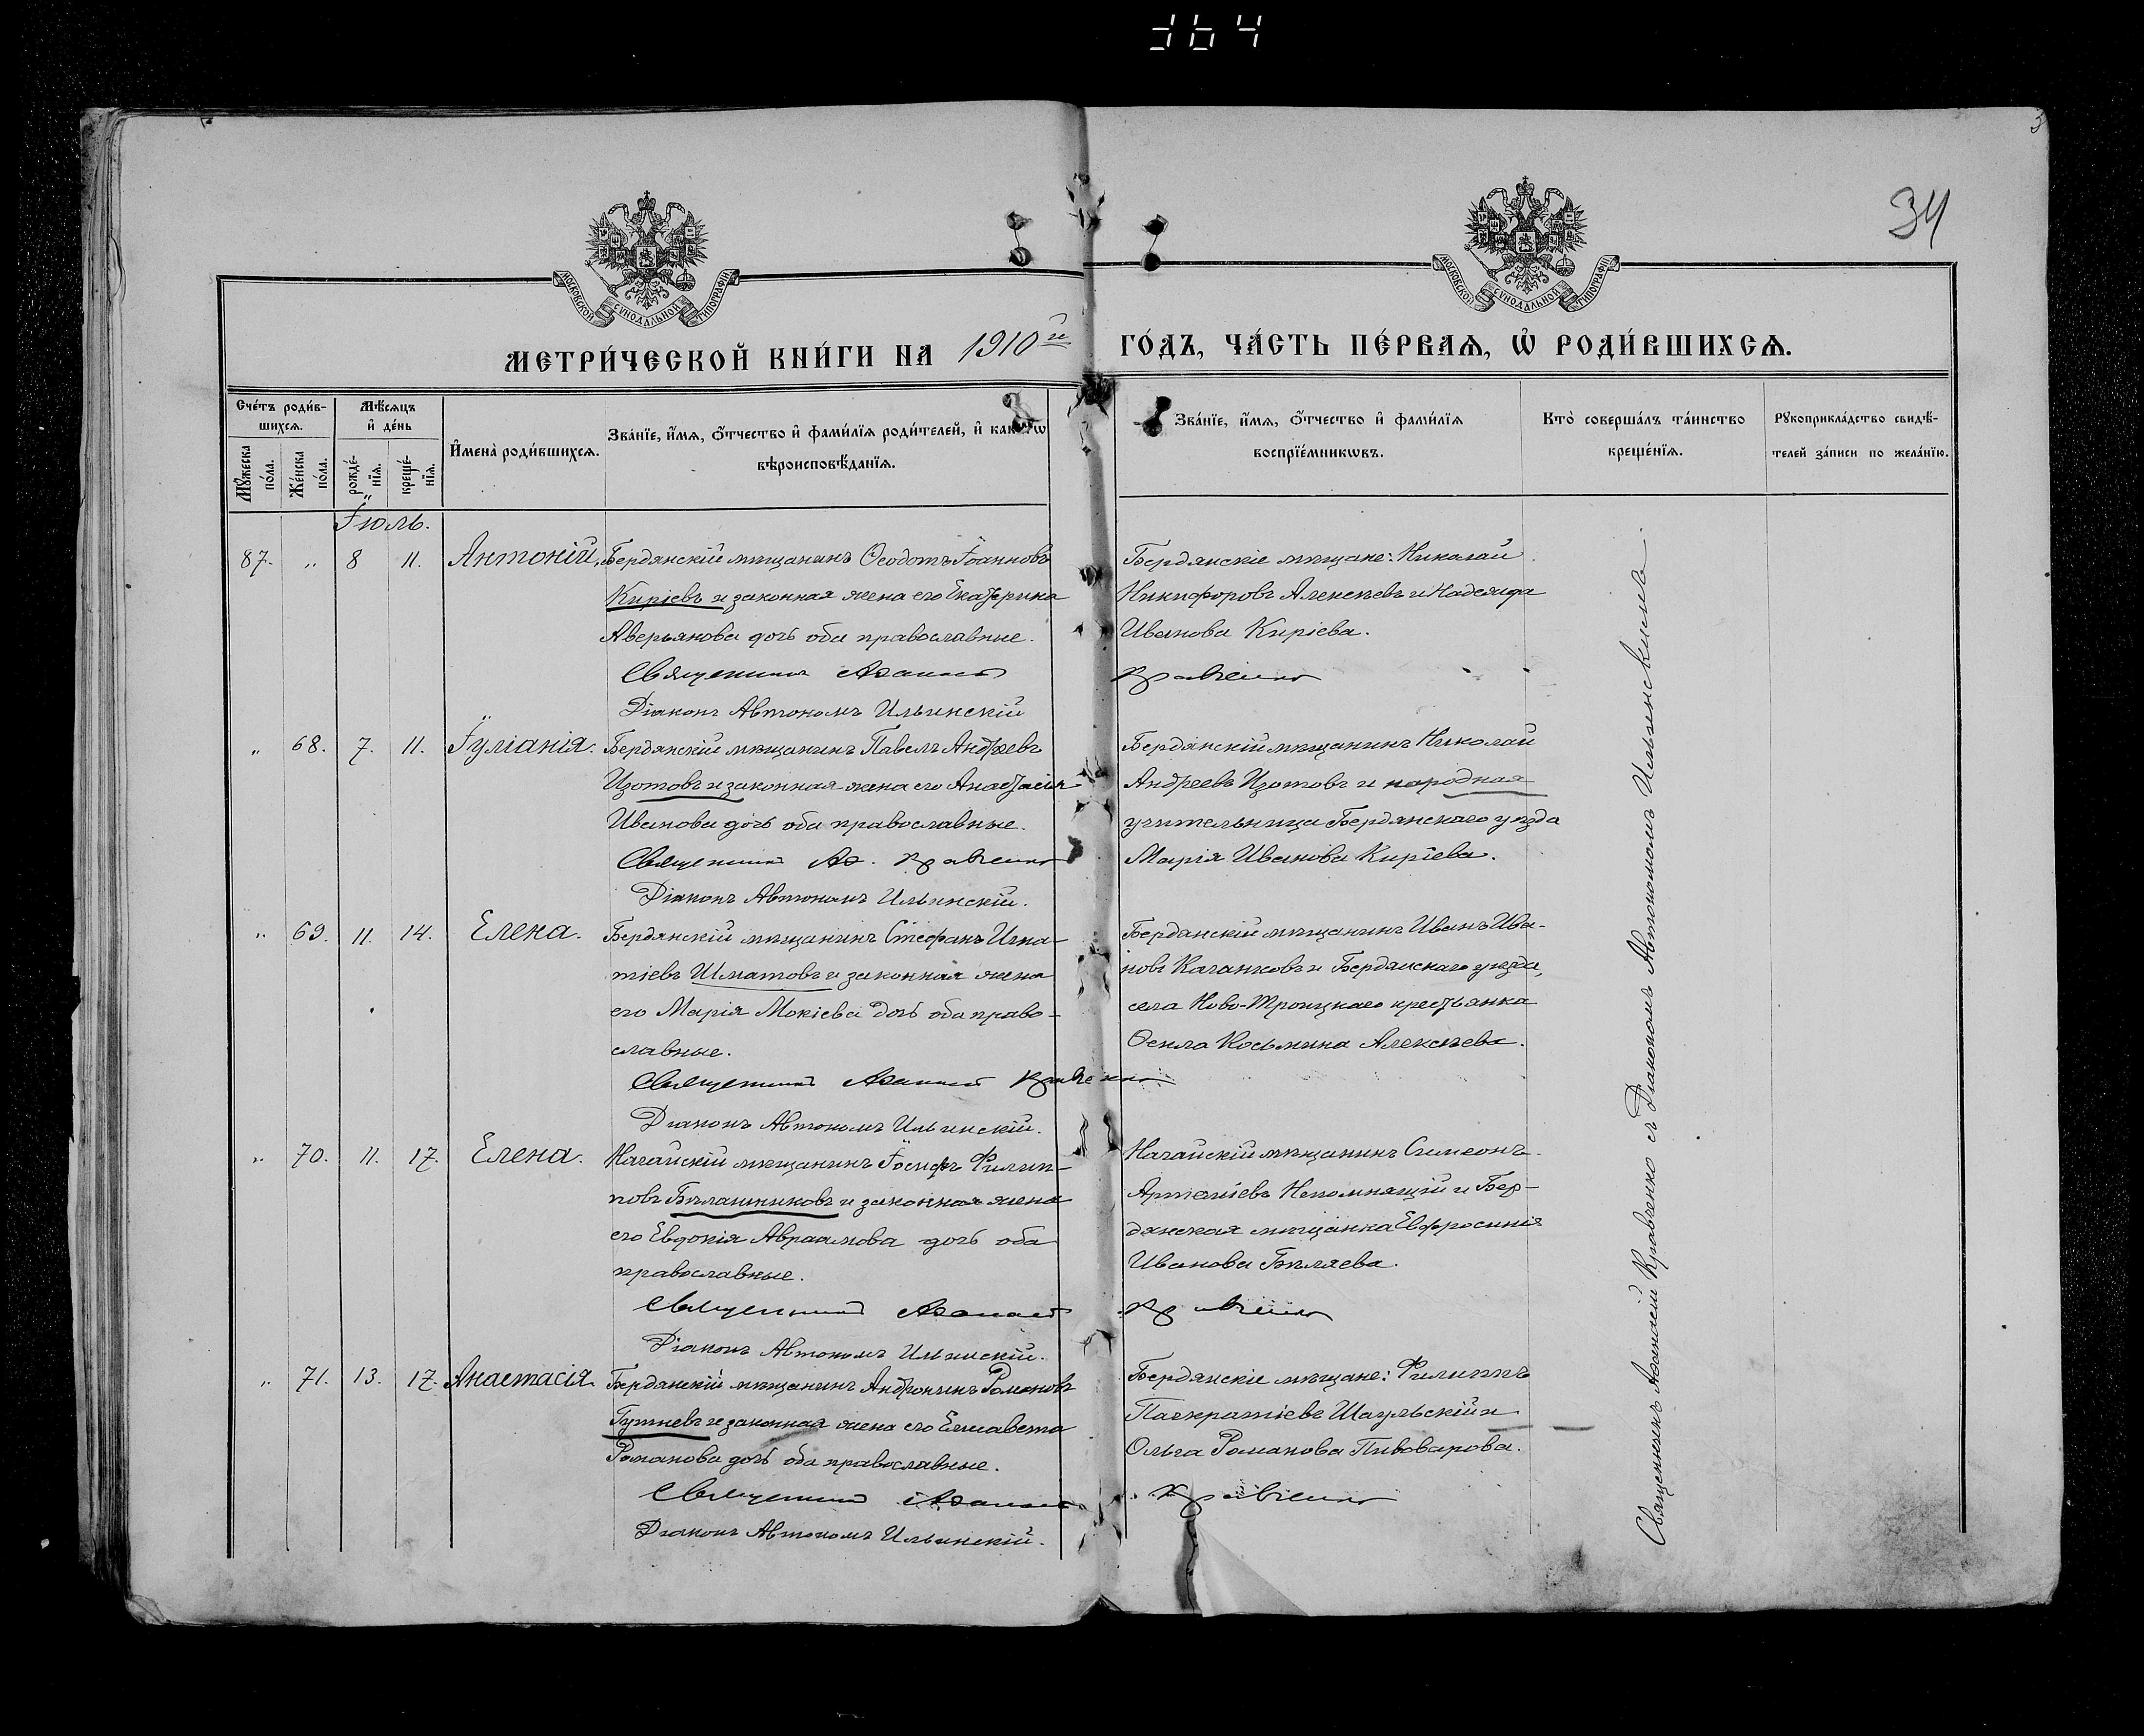 364
34
МОСКОВСКОЙ СѴНОДАЛЬНОЙ ТИПОГРАФІИ
МОСКОВСКОЙ СѴНОДАЛЬНОЙ ТИПОГРАФІИ
МЕТРИ́ЧЕСКОЙ КНИ́ГИ НА 1910й ГО́ДЪ, ЧА́СТЬ ПЕ́РВАѦ, Ѡ҆ РОДИ́ВШИХСѦ.
Сче́тъ роди́в-
шихсѧ.
Мꙋ́жеска по́ла.
Же́нска по́ла.
Мѣ́сѧцъ и҆ де́нь
рожде́-нїѧ.
креще́-нїѧ.
И҆мена̀ роди́вшихсѧ.
Зва́нїе, и҆́мѧ, ѻ҆́тчество и҆ фами́лїѧ роди́телей, и҆ како́гѡ
вѣроисповѣ́данїѧ.
Зва́нїе, и҆́мѧ, ѻ҆́тчество и҆ фами́лїѧ
воспрїе́мникѡвъ.
Кто̀ соверша́лъ та́инство
креще́нїѧ.
Рꙋкоприкла́дство свидѣ́-
телей за́писи по жела́нїю.
Іюль.
87. „ 8 11. Антоній.
Бердянскій мѣщанинъ Ѳеодотъ Іоанновъ
Киріевъ и законная жена его Екатерина
Аверьянова дочь оба православные.
Священникъ Аѳанасій Кравченко
Діаконъ Автономъ Ильинскій
Бердянскіе мѣщане: Николай
Никифоровъ Алексѣевъ и Надежда
Иванова Киріева.
„ 68. 7. 11. Іуліанія.
Бердянскій мѣщанинъ Павелъ Андреевъ
Изотовъ и законная жена его Анастасія
Иванова дочь оба православные.
Священникъ Аѳ. Кравченко
Діаконъ Автономъ Ильинскій.
Бердянскій мѣщанинъ Николай
Андреевъ Изотовъ и народная
учительница Бердянскаго уѣзда
Марія Иванова Киріева.
„ 69. 11. 14. Елена.
Бердянскій мѣщанинъ Стефанъ Игна-
тіевъ Шматовъ и законная жена
его Марія Мокіева дочь оба право-
славные.
Священникъ Аѳанасій Кравченко
Діаконъ Автономъ Ильинскій.
Бердянскій мѣщанинъ Иванъ Ива-
новъ Качанковъ и Бердянскаго уѣзда,
села Ново-Троицкаго крестьянка
Ѳекла Косьмина Алексѣева.
„ 70. 11. 17. Елена.
Ногайскій мѣщанинъ Іосифъ Филип-
повъ Бѣлашниковъ и законная жена
его Евдокія Авраамова дочь оба
православные.
Священникъ Аѳанасій Кравченко
Діаконъ Автономъ Ильинскій.
Ногайскій мѣщанинъ Симеонъ
Непомнящій и Бер-
дянская мѣщанка Евфросинія
Иванова Бѣляева.
„ 71. 13. 17. Анастасія.
Бердянскій мѣщанинъ Романовъ
и законная жена его Елисавета
Романова дочь оба православные.
Священникъ Аѳанасій Кравченко
Діаконъ Автономъ Ильинскій.
Бердянскіе мѣщане: Филиппъ
Панкратіевъ Шаульскій и
Ольга Романова Пивоварова.
Священникъ Аѳанасій Кравченко съ Діакономъ Автономомъ Ильинскимъ